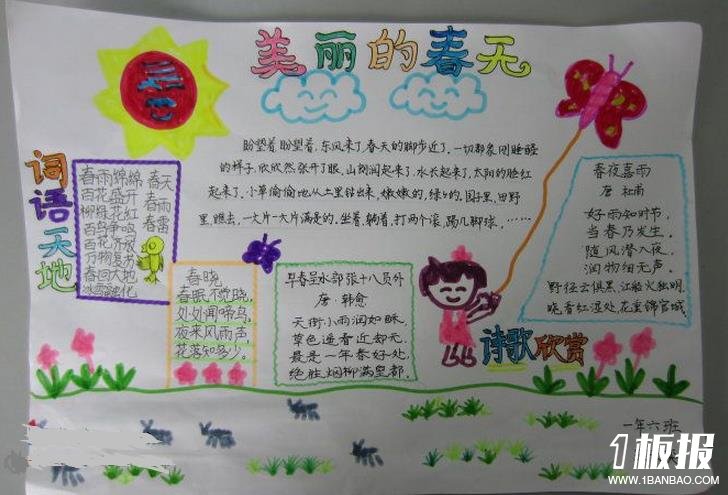 美丽的春天
盼望着,盼望着,东风来了,春天的脚步近了。一切都象刚睡醒
的样子,欣欣然张开了眼。山朗润起来了,水长起来了,太阳的脸红
起来了。小草偷偷地从土里钻出来,嫩嫩的,绿绿的。园子里,田野
里,瞧去,一大片一大片满是的。坐着,躺着,打两个滚,踢几脚球,……
词语天地
春雨绵绵
百花盛开
柳绿花红
百鸟争鸣
百花齐放
万物复苏
春回大地
冰雪融化
春天
春雨
春雷
春晓
春眠不觉晓,
处处闻啼鸟,
夜来风雨声,
花落知多少。
早春呈水部张十八员外
唐·韩愈
天街小雨润如酥,
草色遥看近却无。
最是一年春好处,
绝胜烟柳满皇都。
春夜喜雨
唐 杜甫
好雨知时节,
当春乃发生。
随风潜入夜,
润物细无声。
野径云俱黑,江船火独明。
晓看红湿处,花重锦官城。
诗歌欣赏
一年六班
1板报
WWW.1BANBAO.COM